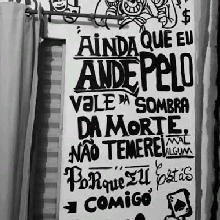 $
AINDA QUE EU
ANDE PELO
VALE DA SOMBRA
DA MORTE,
NÃO TEMEREI MAL
ALGUM
PORQUE TU ESTÁS
COMIGO